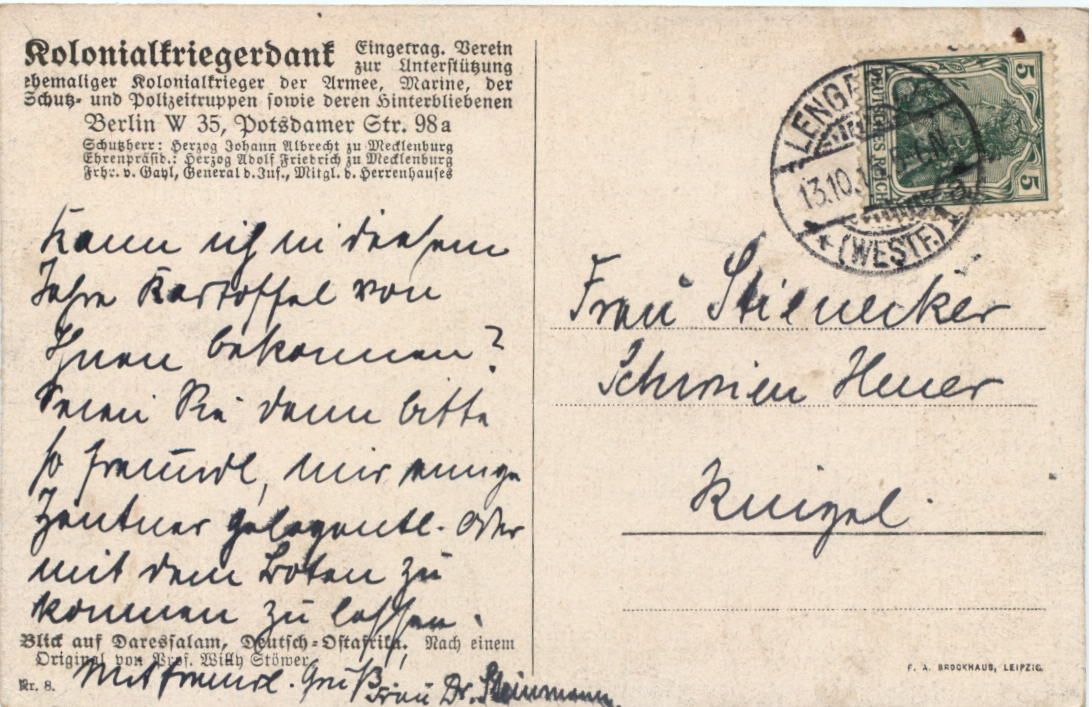 Kolonialkriegerdank Eingetrag. Verein
zur Unterstützung
ehemaliger Kolonialkrieger der Armee, Marine, der
Schutz- und Polizeitruppen sowie deren Hinterbliebenen
Berlin W 35, Potsdamer Str. 98a
Schutzherr: Herzog Johann Albrecht zu Mecklenburg
Ehrenpräsid.: Herzog Adolf Friedrich zu Mecklenburg
Frhr. v. Gayl, General d. Inf., Mitgl. d. Herrenhauses
Kann ich in diesem
Jahre Kartoffel von
Ihnen bekommen?
Seien Sie dann bitte
so freundl, mir einige
Zentner gelegentl. oder
mit dem Boten zu
kommen zu lassen.
Blick auf Daressalam, Deutsch-Ostafrika. Nach einem
Original von Prof. Willy Stöwer
Mit freundl. Gruß
Frau Dr. Steinmann
Nr. 8.
DEUTSCHES REICH
5
5
13.10.
(WESTF.)
Frau Stienecker
F. A. BROCKHAUS, LEIPZIG.